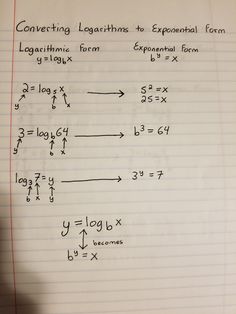 Converting Logarithms to Exponential Form
Logarithmic Form Exponential Form
y = log_b x b^y = x
2 = log_5 x → 5^2 = x
y b x 25 = x
3 = log_b 64 → b^3 = 64
y b x
log_3 7 = y → 3^y = 7
b x y
y = log_b x
↕ becomes
b^y = x